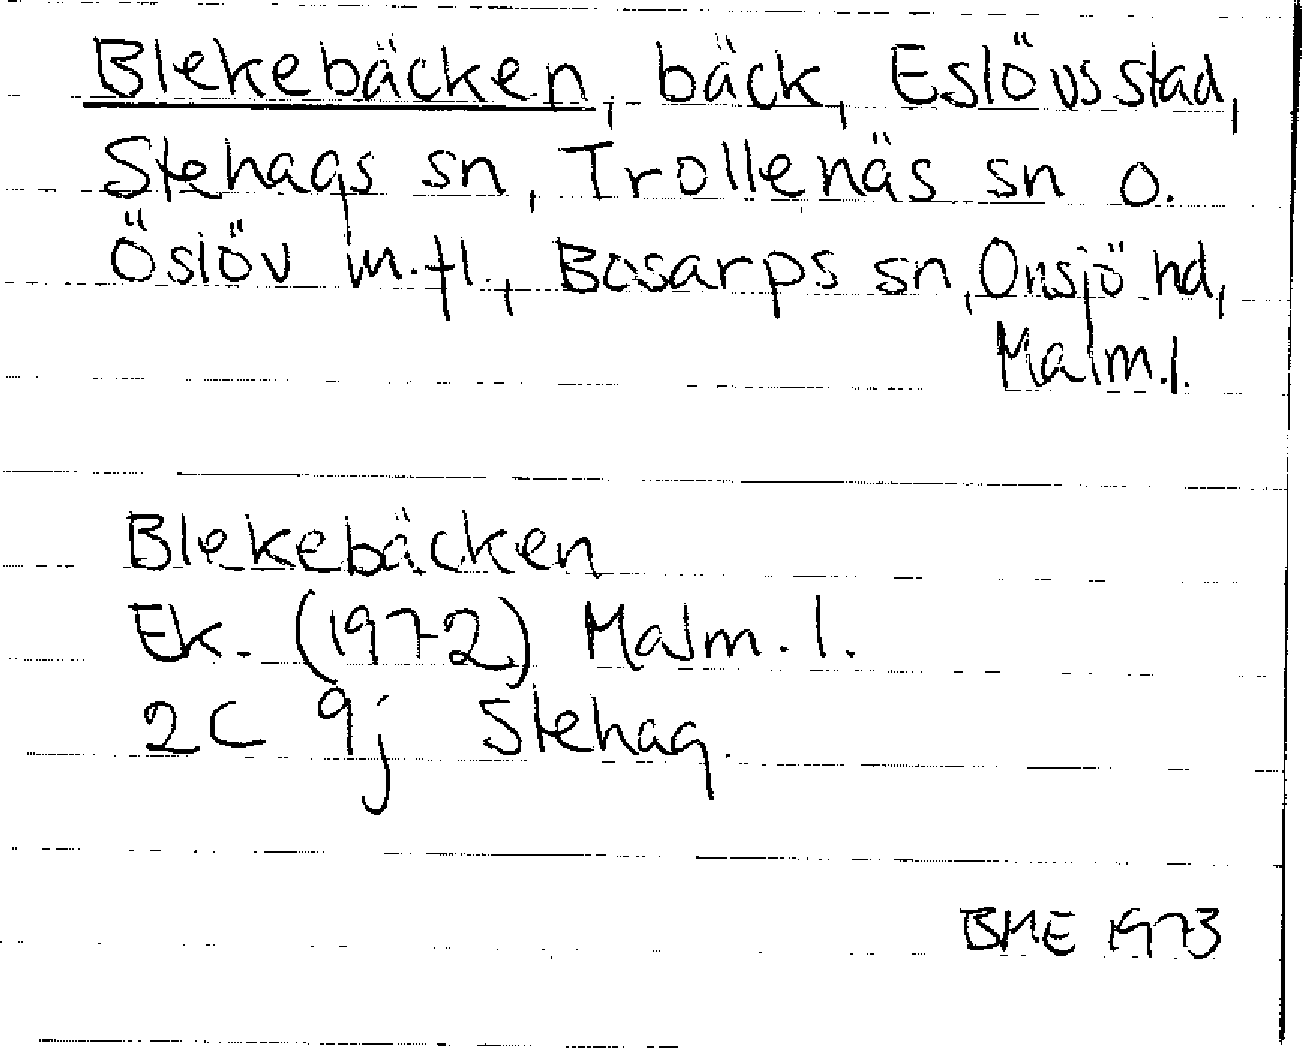 Blekebäcken, bäck, Eslövs stad,
Stehags sn, Trollenäs sn o.
Öslöv m.fl., Bosarps sn, Onsjö hd,
Malm.l.
Blekebäcken
Ek. (1972) Malm.l.
2C 9j Stehag.
BME 1973